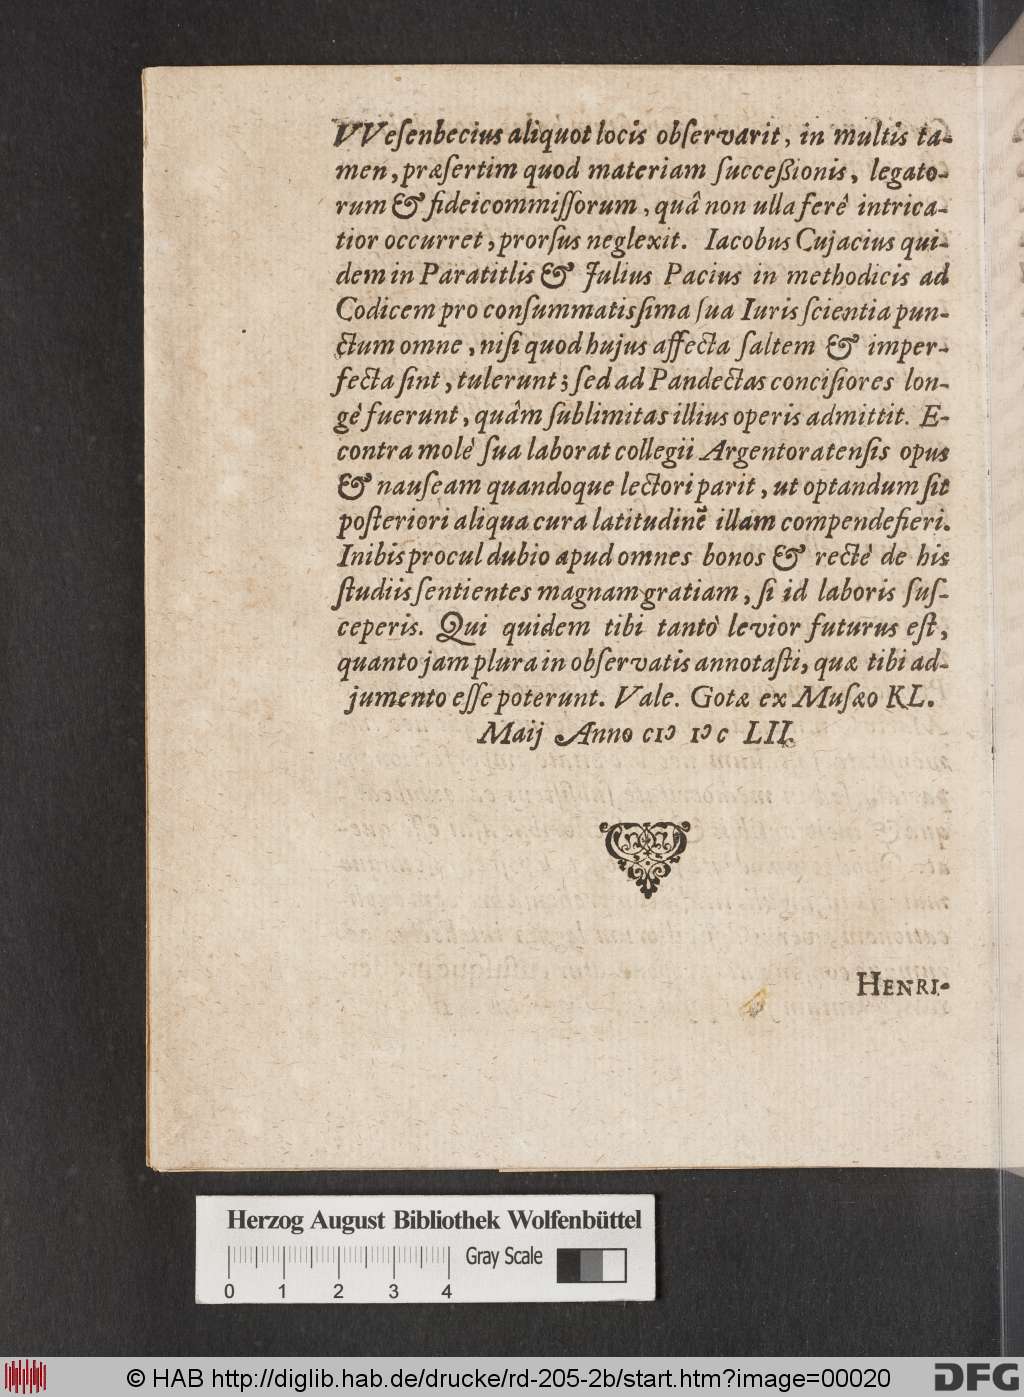 VVeſenbecius aliquot locis obſervarit, in multis ta-
men, præſertim quod materiam ſucceßionis, legato-
rum & fideicommiſſorum, quâ non ulla ferè intrica-
tior occurret, prorſus neglexit. Iacobus Cujacius qui-
dem in Paratitlis & Julius Pacius in methodicis ad
Codicem pro conſummatisſima ſua Iuris ſcientia pun-
ctum omne, niſi quod hujus affecta ſaltem & imper-
fecta ſint, tulerunt; ſed ad Pandectas conciſiores lon-
gè fuerunt, quâm ſublimitas illius operis admittit. E-
contra molè ſua laborat collegii Argentoratenſis opus
& nauſeam quandoque lectori parit, ut optandum ſit
poſteriori aliqua cura latitudinẽ illam compendefieri.
Inibis procul dubio apud omnes bonos & rectè de his
ſtudiis ſentientes magnam gratiam, ſi id laboris ſuſ-
ceperis. Qui quidem tibi tantò levior futurus eſt,
quanto jam plura in obſervatis annotaſti, quæ tibi ad-
jumento eſſe poterunt. Vale. Gotæ ex Muſæo KL.
Maij Anno cIↄ Iↄc LII.
HENRI-
Herzog August Bibliothek Wolfenbüttel
Gray Scale
0 1 2 3 4
© HAB http://diglib.hab.de/drucke/rd-205-2b/start.htm?image=00020
DFG